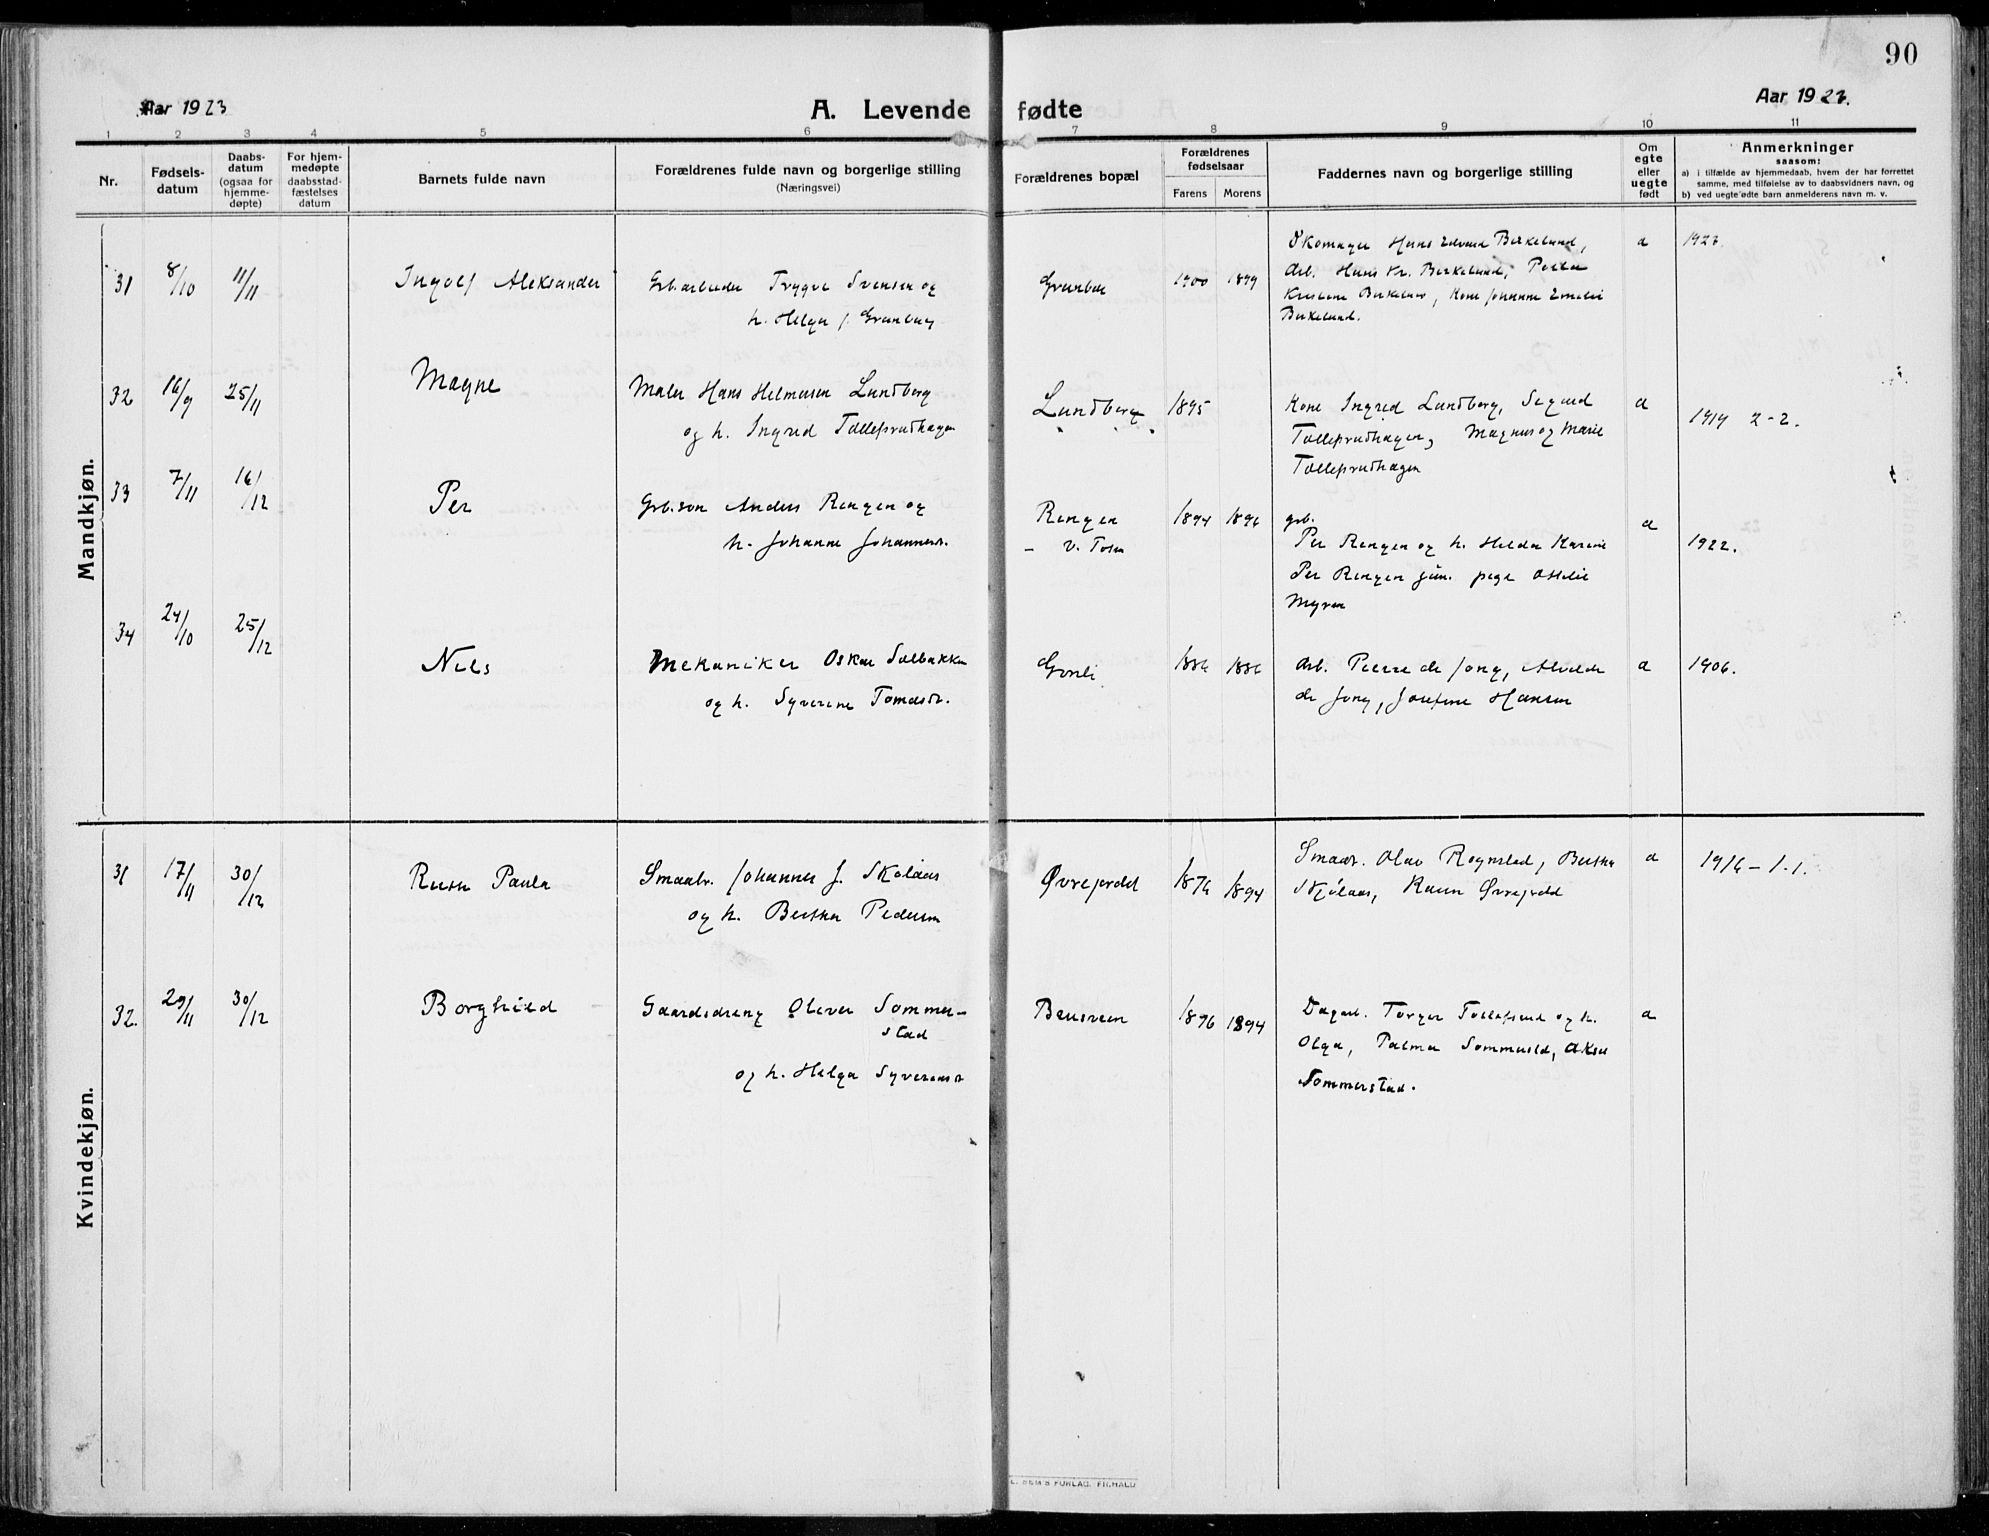 90
Aar 1923
A. Levende fødte
Aar 1923.
1 2 3 4 5 6 7 8 9 10 11
Nr.
Fødsels-
datum
Daabs-
datum
(ogsaa for
hjemme-
døpte)
For hjem-
medøpte
daabsstad-
fæstelses
datum
Barnets fulde navn
Forældrenes fulde navn og borgerlige stilling
(Næringsvei)
Forældrenes bopæl
Forældrenes
fødselsaar
Farens Morens
Faddernes navn og borgerlige stilling
Om
egte
eller
uegte
født
Anmerkninger
saasom:
a) i tilfælde av hjemmedaab, hvem der har forrettet
samme, med tilføielse av to daabsvidners navn, og
b) ved uegte fødte barn anmelderens navn m. v.
Mandkjøn.
31 8/10 11/11 Ingolf Aleksander
Grb.arbeider Trygve Svensen og
h. Helga f. Granberg
1900 1899
Skomager Hans Edvard Birkelund,
Arb. Hans Kr. Birkelund, Petra
Kristine Birkelund, Kone Johanne Emelie
Birkelund.
a 1923.
32 16/9 25/11 Magne
Maler Hans Helmersen Lundberg
og h. Ingrid Tollefsrudhagen
Lundberg 1895
Kone Ingrid Lundberg, Sigurd
Tollefsrudhagen, Magnus og Marie
Tollefsrudhagen
a 1919 2-2.
33 7/11 16/12 Per
Grb.søn Anders Rengen og
h. Johanne Johannesd.
Rengen
- v. Toten
1894 1896
grb.
Per Rengen og h. Helda Karine
Per Rengen jun. pige Otelie
Myren
a 1922.
34 24/10 25/12 Nils
Mekaniker Oskar Solbakken
og h. Syverine Tomasd.
1886 1886
Arb. Pierre de Jong, Alvilde
de Jong, Josefine Hansen
a 1906.
Kvindekjøn.
31 17/11 30/12 Ruth Paula
Smaabr. Johannes J. Skolaas
og h. Bertha Pedersen
Øvrejordet 1876 1894
Smaabr. Olav Rognstad, Bertha
Skjølaas, Karen Øvrejordet
a 1916 - 1.1.
32. 29/11 30/12 Borghild
Gaardsdreng Oliver Sommer-
stad
og h. Helga Syversensd.
Brusveen 1896 1894
Dagarb. Torger Tollefsrud og h.
Olga, Palma Sommerstad, Aksel
Sommerstad.
a
E. SEM'S FORLAG. FR.HALD